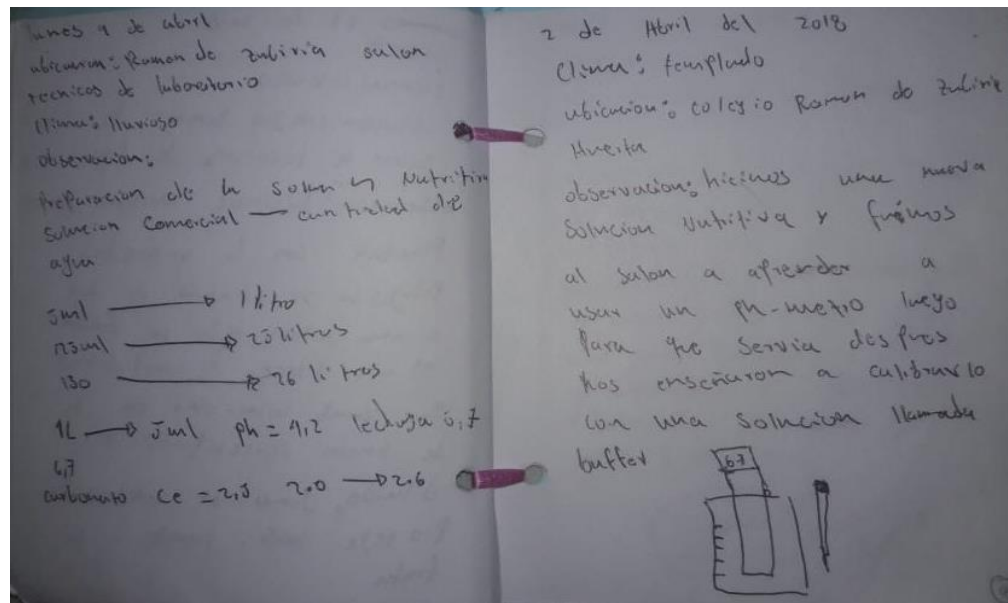 lunes 9 de abril
ubicacion: Ramon de zubiria salon
tecnicos de laboratorio
Clima: lluvioso
observacion:
Preparacion de la solucion Nutritiva
Solucion Comercial — cantidad de
agua
5ml → 1 litro
125ml → 25 litros
130 → 26 litros
1L → 5ml ph = 4,2 lechuga 5,7
6,7
carbonato Ce = 2,5 2.0 → 2.6
2 de Abril del 2018
Clima: templado
ubicacion: colegio Ramon de zubiria
Huerta
observacion: hicimos una nueva
Solucion Nutritiva y fuimos
al salon a aprender a
usar un ph-metro luego
Para que servia despues
nos enseñaron a calibrarlo
con una solucion llamada
buffer
6.7